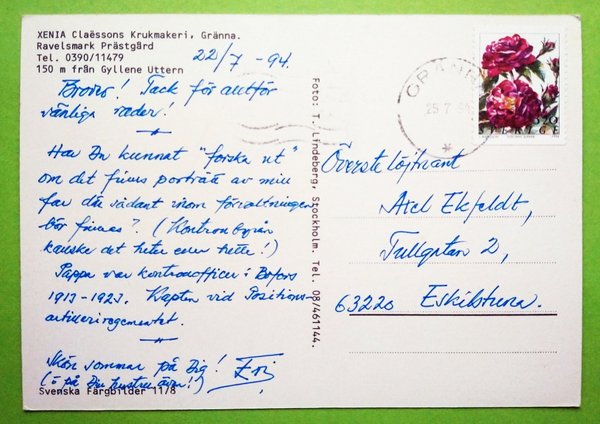 XENIA Claëssons Krukmakeri, Gränna.
Ravelsmark Prästgård
Tel. 0390/11479
150 m från Gyllene Uttern
22/7 - 94.
Tack för allt för
vänliga rader!
Har Du kunnat "forska ut"
om det finns porträtt av min
far där sådant inom förvaltningen
bör finnas? (Kontrollbyrån
kanske det heter eller hette!)
Pappa var kontrollofficer i Bofors
1917-1923. Kapten vid Positions-
artilleriregementet.
Skön sommar på Dig!
(o på Din hustru även!)
Svenska Färgbilder 11/8
Foto: T. Lindeberg, Stockholm. Tel. 08/461144.
GRÄNNA
25 7
SVERIGE
Överstelöjtnant
Axel Ekfeldt,
Tullgatan 2,
63220 Eskilstuna.